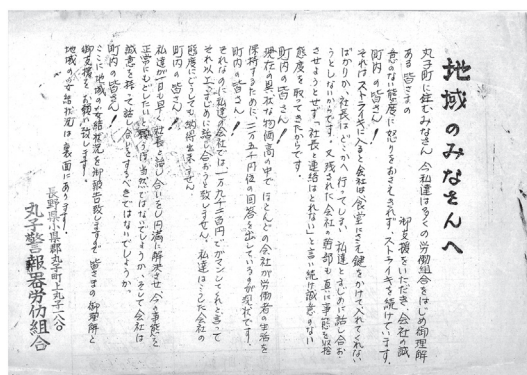 地域のみなさんへ
丸子町に住むみなさん 今私達は多くの労働組合をはじめ御理解
ある皆さまの御支援をいただき、会社の誠
意のない態度に怒りをおさえきれず、ストライキを続けています。
町内の皆さん!
それはストライキに入ると会社は食堂にさえ鍵をかけて入れてくれない
ばかりか、社長はどこかへ行ってしまい、私達とまじめに話し合お
うとしないからです。又残された会社の幹部も真に事態を収拾
させようとせず「社長と連絡はとれない」と言い続け誠意のない
態度を取ってきたからです。
町内の皆さん!
現在の異状な物価高の中で ほとんどの会社が労働者の生活を
保持するために、二万五千円位の回答を出しているのが現状です。
町内の皆さん!
それなのに私達の会社では、一万九千二百円でガマンしてくれと言って
それ以上まじめに話し合おうと致しません。私達はこうした会社の
態度にどうしても納得出来ません。
町内の皆さん!
私達が一日も早く社長と話し合いをし円満に解決させ 今の事態を
正常にもどしたいと願うのは当然ではないでしょうか、そして会社は
誠意を持って話し合いをするべきではないでしょうか。
町内の皆さん!
ここに地域の支給状況を御報告致しますので 皆さまの御理解と
御支援をお願い致します。
地域の支給状況は裏面にあります。
長野県小県郡丸子町上丸子一六〇
丸子警報器労仂組合